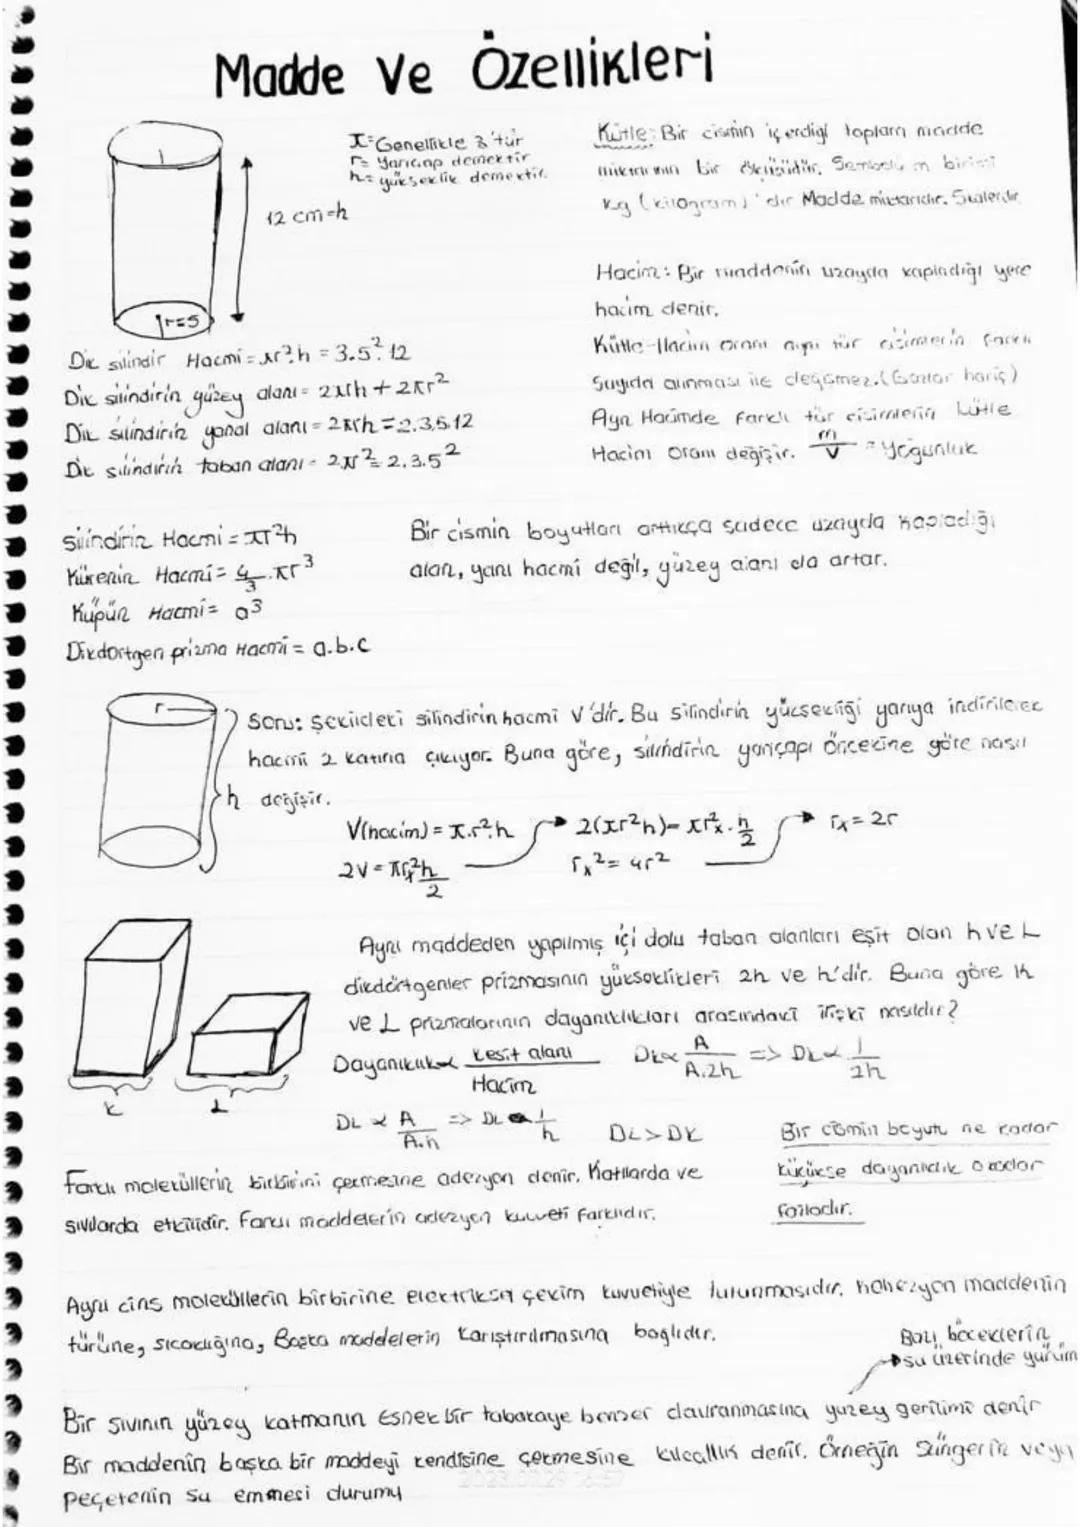 Madde Ve Özellikleri
π=Genellikle 3'tür
r= yarıçap demektir
h= yükseklik demektir.
12 cm=h
r=5
Dik silindir Hacmi=πr².h = 3.5².12
Dik silindirin güzey alanı= 2πrh + 2πr²
Dik silindirin yanal alanı = 2πrh = 2.3.5.12
Dik silindirin taban alanı = 2πr² = 2.3.5²
Kütle: Bir cismin içerdiği toplam madde
miktarının bir ölçüsüdür. Sembolü m birimi
kg (kilogram)'dır Madde miktarıdır. Skalerdir
Hacim: Bir maddenin uzayda kapladığı yere
hacim denir.
Kütle-Hacim oranı aynı tür cisimlerin farklı
sayıda alınması ile değişmez.(Gazlar hariç)
Aynı Hacimde farklı tür cisimlerin kütle
Hacim oranı değişir. m/V = Yoğunluk
silindirin Hacmi = πr²h
Kürenin Hacmi= 4/3.πr³
Küpün Hacmi= a³
Dikdörtgen prizma Hacmi = a.b.c
Bir cismin boyutları arttıkça sadece uzayda kapladığı
alan, yani hacmi değil, yüzey alanı da artar.
r
h
Soru: Şekildeki silindirin hacmi V'dir. Bu silindirin yüksekliği yarıya indirilerek
hacmi 2 katına çıkıyor. Buna göre, silindirin yarıçapı öncekine göre nasıl
değişir.
V(hacim) = π.r².h
2V = πrₓ²h/2
2(πr²h)= πrₓ².h/2
rₓ²= 4r²
rₓ= 2r
K
L
Aynı maddeden yapılmış içi dolu taban alanları eşit olan k ve L
dikdörtgenler prizmasının yükseklikleri 2h ve h'dir. Buna göre K
ve L prizmalarının dayanıklılıkları arasındaki ilişki nasıldır?
Dayanıklılık ∝ kesit alanı/Hacim
Dk∝ A/A.2h => Dk∝ 1/2h
DL ∝ A/A.h => DL ∝ 1/h
DL>DK
Bir cismin boyutu ne kadar
küçükse dayanıklılık o kadar
fazladır.
Farklı moleküllerin birbirini çekmesine adezyon denir. Katılarda ve
sıvılarda etkilidir. Farklı maddelerin adezyon kuvveti farklıdır.
Aynı cins moleküllerin birbirine elektriksel çekim kuvvetiyle tutunmasıdır. kohezyon maddenin
türüne, sıcaklığına, Başka maddelerin karıştırılmasına bağlıdır.
Bazı böceklerin
su üzerinde yürüm
Bir sıvının yüzey katmanın esnek bir tabakaya benzer davranmasına yüzey gerilimi denir
Bir maddenin başka bir maddeyi kendisine çekmesine kılcallık denir. Örneğin Süngerin veya
peçetenin su emmesi durumu